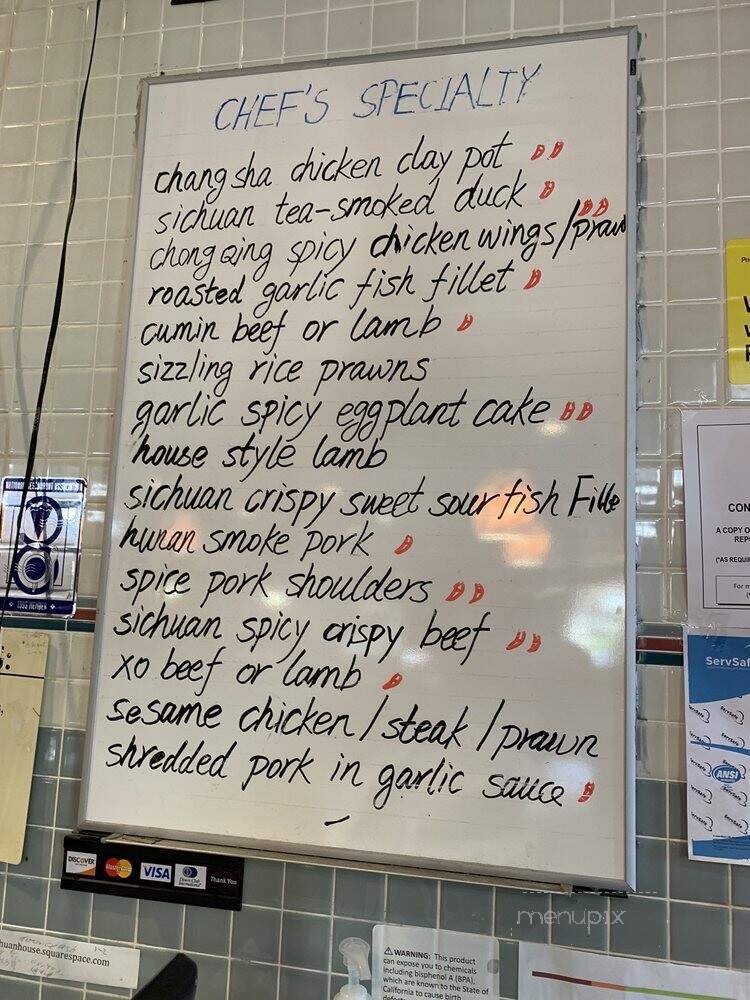 CHEF'S SPECIALTY
changsha chicken clay pot
sichuan tea-smoked duck
chongqing spicy chicken wings/praw
roasted garlic fish fillet
cumin beef or lamb
sizzling rice prawns
garlic spicy eggplant cake
house style lamb
sichuan crispy sweet sour fish Fille
hunan smoke pork
spice pork shoulders
sichuan spicy crispy beef
xo beef or lamb
sesame chicken/steak/prawn
shredded pork in garlic sauce
DISCOVER
MasterCard
VISA
Diners Club International
Thank You
huanhouse.squarespace.com
WARNING: This product
can expose you to chemicals
including bisphenol A (BPA),
which are known to the State of
California to cause birth
CON
A COPY O
REPO
(*AS REQUIR
For m
ServSaf
ANSI
menupix